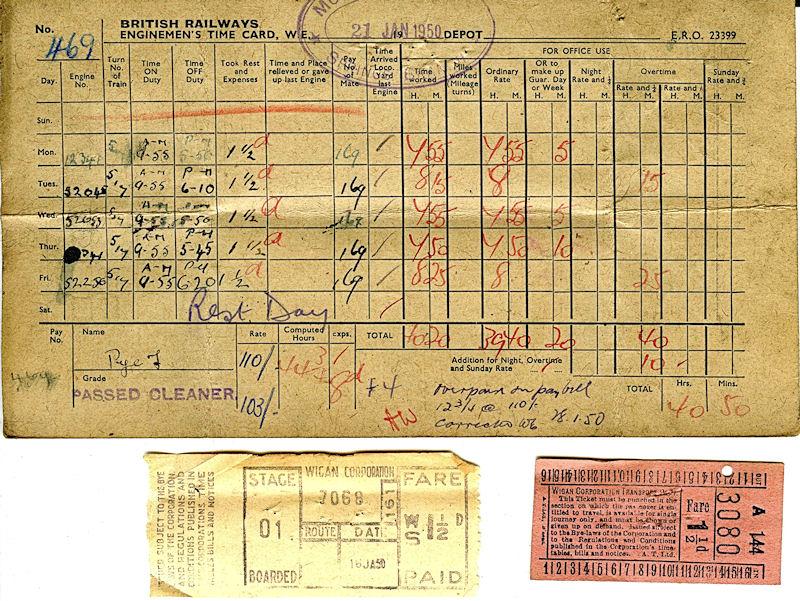 No. 469
BRITISH RAILWAYS
ENGINEMEN'S TIME CARD, W.E. 21 JAN 1950 19 DEPOT E.R.O. 23399
FOR OFFICE USE
Day. Engine No. Turn No. of Train Time ON Duty Time OFF Duty Took Rest and Expenses Time and Place relieved or gave up last Engine Pay No. of Mate Time Arrived Loco. Yard last Engine Time worked Miles worked (Mileage turns) Ordinary Rate OR to make up Guar. Day or Week Night Rate and ⅓ Overtime Rate and ¼ Rate and ½ Sunday Rate and ¾
H. M. H. M. H. M. H. M. H. M. H. M. H. M.
Sun.
Mon. A-M 9-55 P-M 1 ½ d 169 / 7 55 7 55 5
Tues. 5/17 A-M 9-55 P-M 6-10 1 ½ d 169 / 8 15 8 15
Wed. 5/17 A-M 9-55 P-M 5-50 1 ½ d 169 / 7 55 7 55 5
Thur. 5/17 A-M 9-55 P-M 5-45 1 ½ d 169 / 7 50 7 50 10
Fri. 52256 5/17 A-M 9-55 P-M 6 20 1 ½ d 169 / 8 25 8 25
Sat. Rest Day /
Pay No. Name Rate Computed Hours exps. TOTAL 40 20 39 40 20 40
Pye J 110/- Addition for Night, Overtime and Sunday Rate 10
469 Grade
PASSED CLEANER 103/- £4 TOTAL Hrs. Mins. 40 50
Overpaid on paybill
12 ¾ @ 110/-
Corrected 28.1.50
WIGAN CORPORATION
STAGE 01 BOARDED
7069
ROUTE DATE
16 JA 50
161
FARE
W S 1½ D
PAID
SUBJECT TO THE BYE
OF THE CORPORATION
AND REGULATIONS AND
CONDITIONS PUBLISHED IN
CORPORATIONS TIME
TABLES BILLS AND NOTICES
WIGAN CORPORATION TRANSPORT
This Ticket must be punched in the
section on which the passenger is en-
titled to travel, is available for single
journey only, and must be shown or
given up on demand. Issued subject to
the Bye-laws of the Corporation and
to the Regulations and Conditions
published in the Corporation's time-
tables, bills and notices. A. T. Ltd.
Fare 1½d
3080
A 144
1 2 3 4 5 6 7 8 9 10 11 12 13 14 15 16